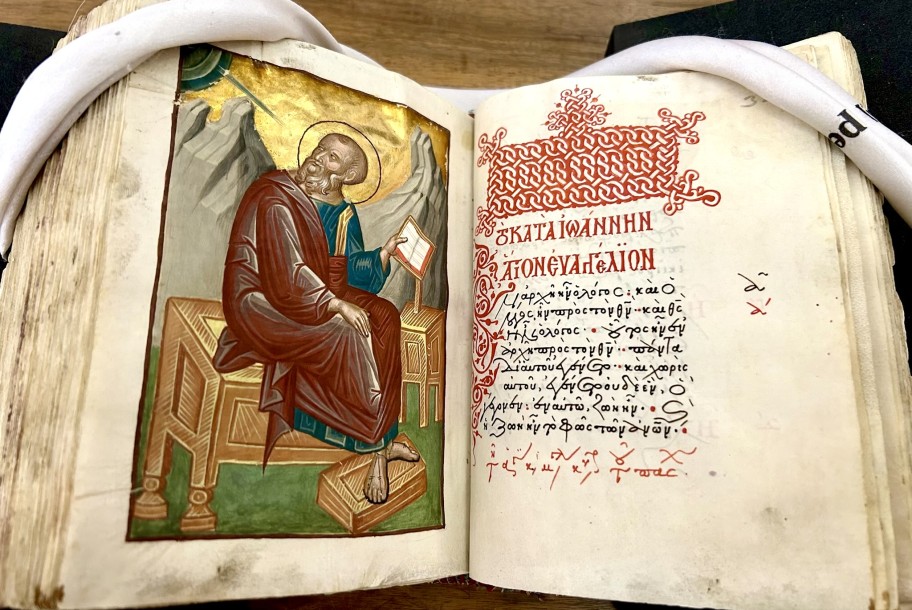 ΚΑΤᾺ ἸΩΆΝΝΗΝ
ἍΓΙΟΝ ΕΥΑΓΓΈΛΙΟΝ
ἀρχῆ ἦν ὁ λόγος : καὶ ὁ
λόγος ἦν προς τὸν θν̄ ·· καὶ θς̄
ἦν ὁ λόγος · οὗτος ἦν ἐν
ἀρχῆ προς τὸν θν̄ ·· πάντα
δι αὐτοῦ ἐγένετο ·· καὶ χωρὶς
αὐτοῦ, ἐγένετο οὐδὲ ἕν, ὃ
γέγονεν : ἐν αὐτῶ, ζωὴ ἦν · καὶ
ἡ ζωὴ ἦν τὸ φῶς τῶν ἀνω̄ν ·